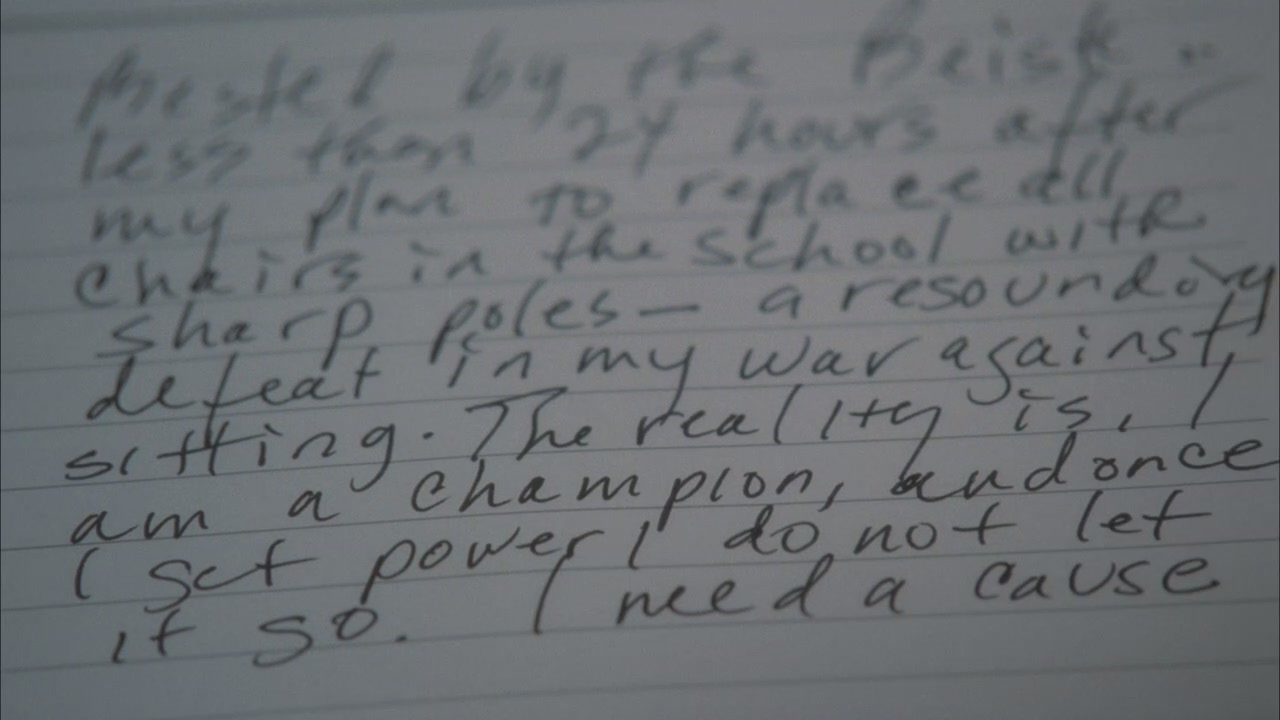 by the Beiste
less than 24 hours after
my plan to replace all
chairs in the school with
sharp poles— a resounding
defeat in my war against
sitting. The reality is, I
am a champion, and once
I get power I do not let
it go. I need a cause